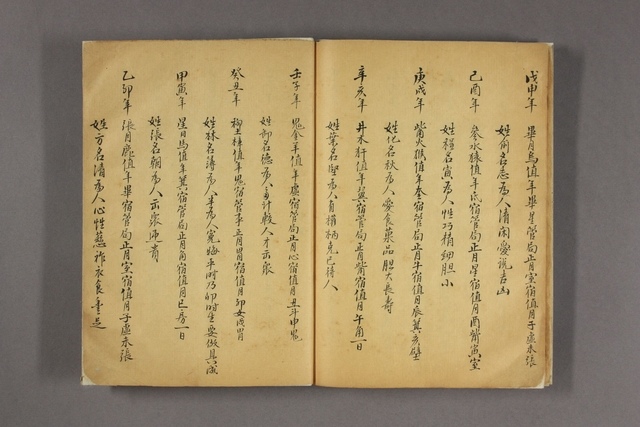 戊申年　畢月烏值年畢星管局正月室宿值月子虛未張
姓俞名忠為人清閑愛說吉凶
己酉年　參水猿值年氐宿管局正月星宿值月酉觜寅室
姓程名寅為人性巧精細胆小
庚戌年　觜火猴值年奎宿管局正月牛宿值月辰翼亥壁
姓化名秋為人愛食菓品胆大長壽
辛亥年　井木犴值年翼宿管局正月觜宿值月午角一日
姓葉名堅為人有權柄克己待人
壬子年　鬼金羊值年虛宿管局正月心宿值月丑斗申鬼
姓邱名德為人多計較人才出衆
癸丑年　柳土獐值年鬼宿管事正月胃宿值月卯女戌胃
姓林名薄為人
甲寅年　星日馬值年翼宿管局正月角宿值月巳房一日
姓張名朝為人出衆
乙卯年　張月鹿值年畢宿管局正月室宿值月子虛未張
姓方名清為人心性慈祚衣食豐足